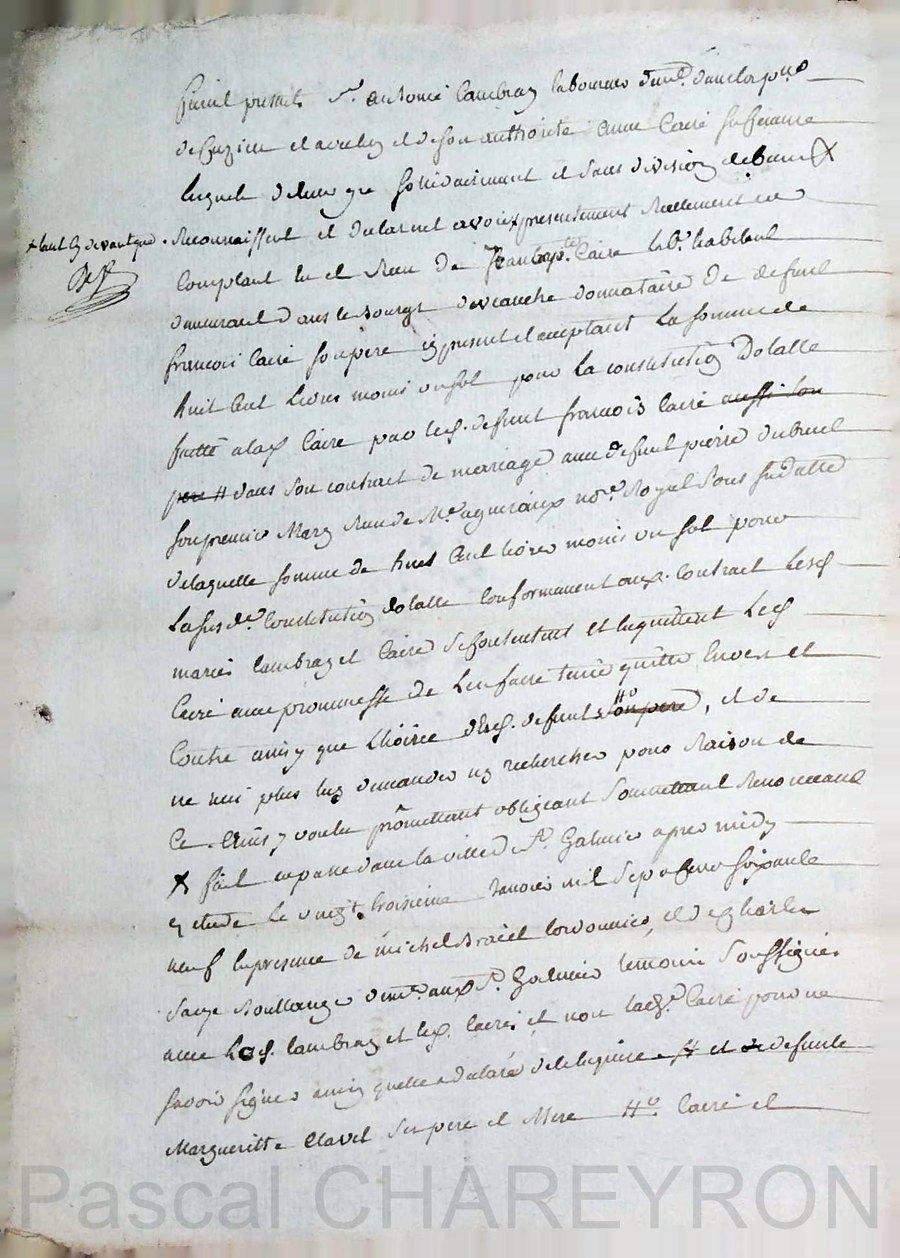 furent presents Sr. antoine Cambray laboureur
de Cuzieu et avec luy et de son authorité anne Cairé sa femme
lesquels de leur gre sollidairement et sans division de biens X
+ tant cy devant que
reconnaissent et declarent avoir presentement reellement en
comptant eu et reçu de Jean bapte. Cairé lab. habitant
demeurant dans le bourg de veauche donnataire de defunt
françois Cairé son pere icy present et acceptant La somme de
huit Cent Livres moins un sol pour La constitution Dotalle
faitte a lad. Cairé par led. defunt françois Cairé aussi son
pere # dans son contract de marriage avec defunt pierre dubreuil
son premier Mary reçu de Me. no.re Royal sous sa datte
de laquelle somme de huit Cent livres moins un sol pour
La susde. Constitution dotalle conformement aud. contract Lesd.
mariés Cambray et Cairé se contentent et en quittent Led.
Cairé avec promesse de L'en faire tenir quitte Envers et
Contre ainsy que L'hoirie dud. defunt son pere #, et de
ne luy plus luy demander ny rechercher pour raison de
Ce. Ainsy voulu promettant obligeant Sommettant Renonceant
X fait et passé dans la ville de St. Galmier apres midy
en etude le vingt troisieme Janvier mil Sept Cent soixante
neuf en presence de michel cordonnier, et de Charles
boullanger aud. St. Galmier temoins Soussignés
avec Led. Cambray et led. Cairé et non lad. Cairé pour ne
savoir signer ainsy quelle a declaré de ce enquise # et de defunte
Margueritte Clavel Ses pere et Mere # Cairé et
Pascal CHAREYRON